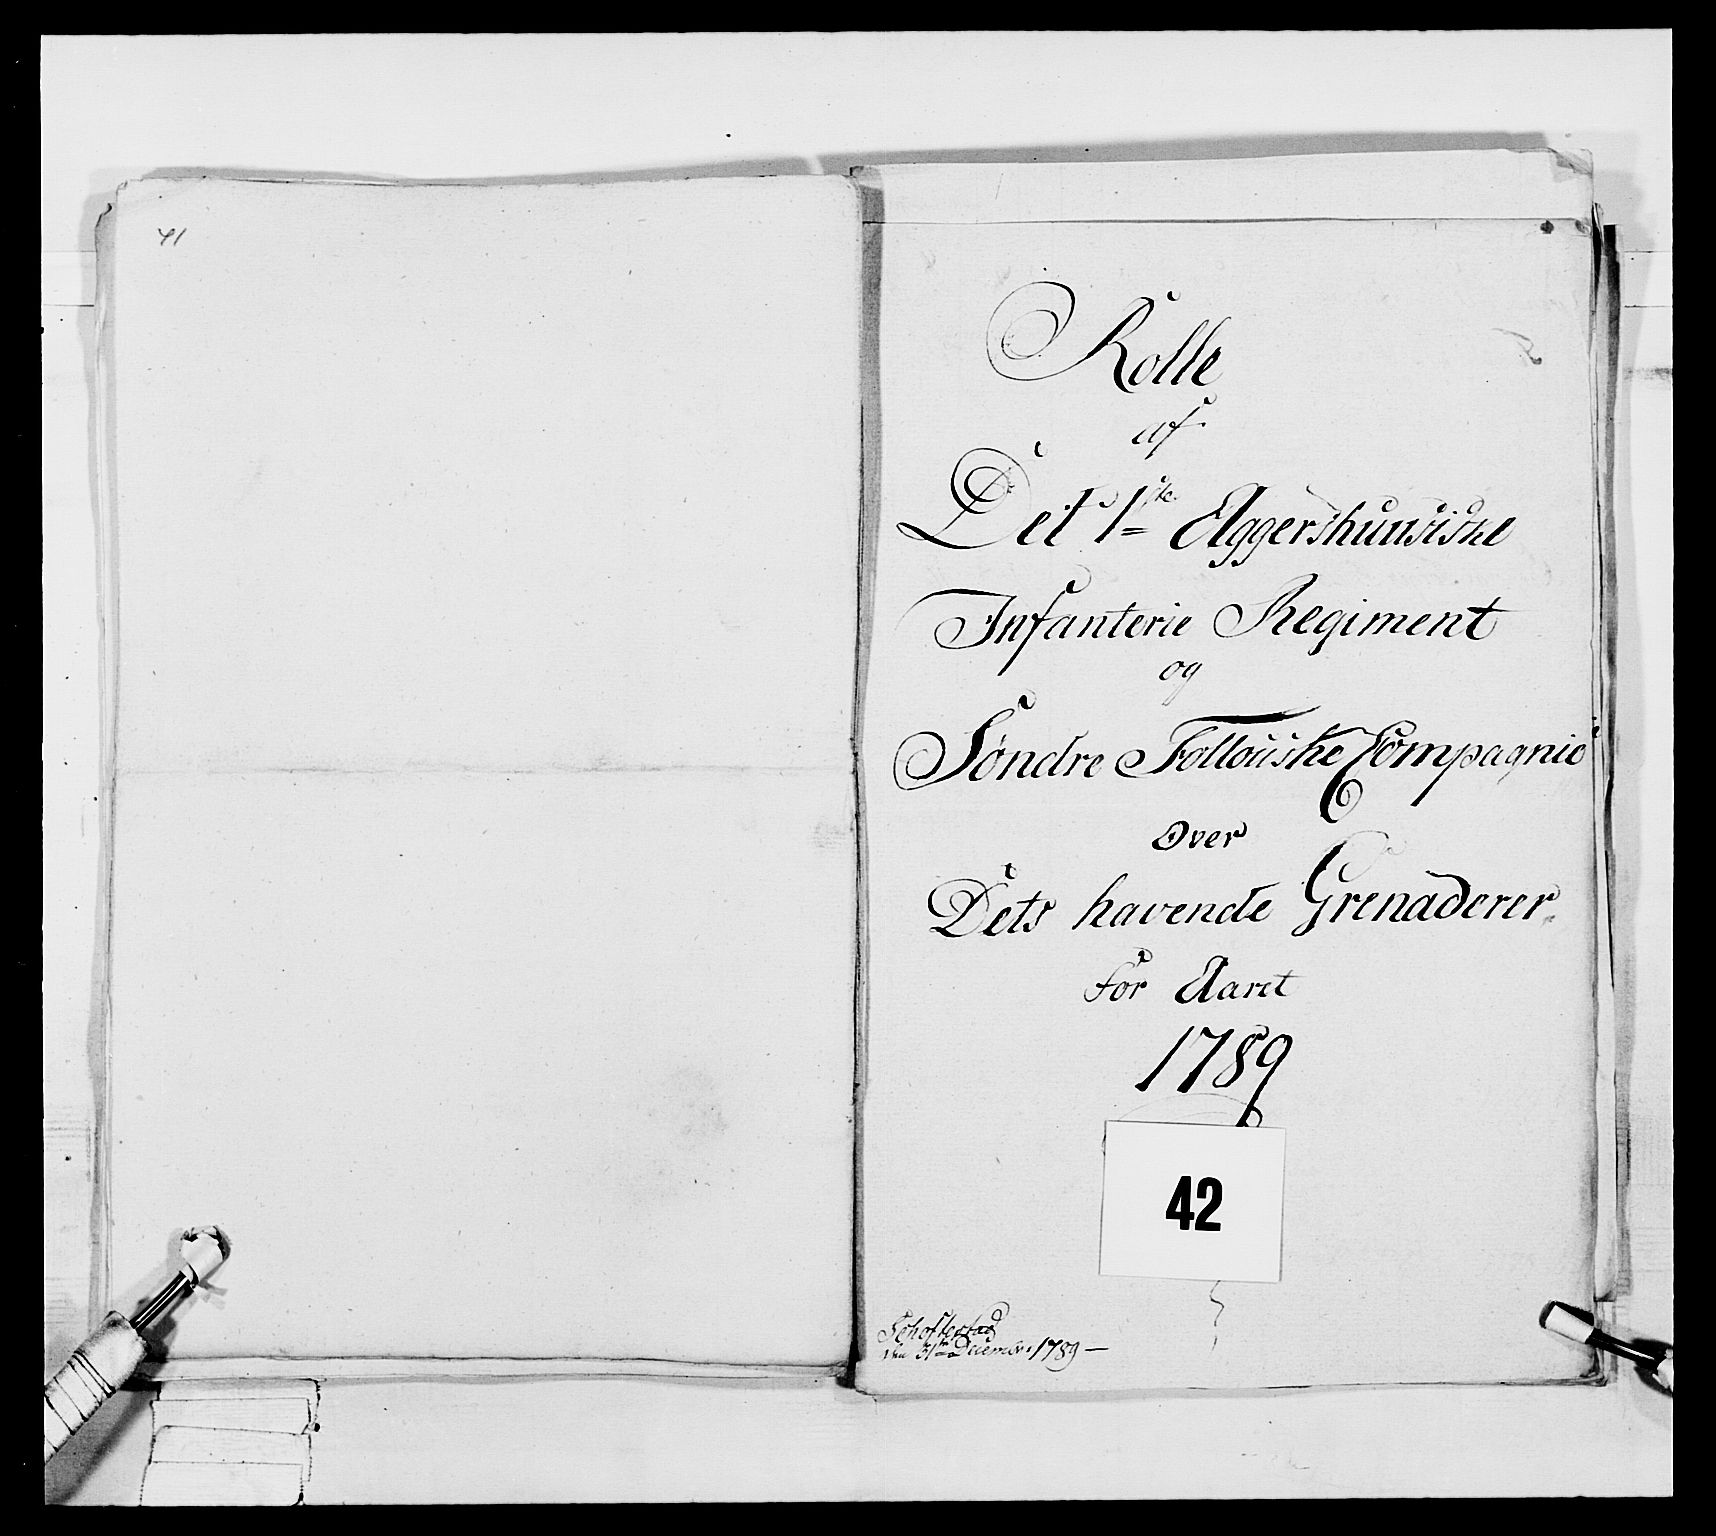 41
Rolle
af
Det 1ste Aggershuusiske
Infanterie Regiment
og
Söndre Follouiske Compagnie
Over
Dets havende Grenaderer
For Aaret
1789
42
den 31te Decembr: 1789 —